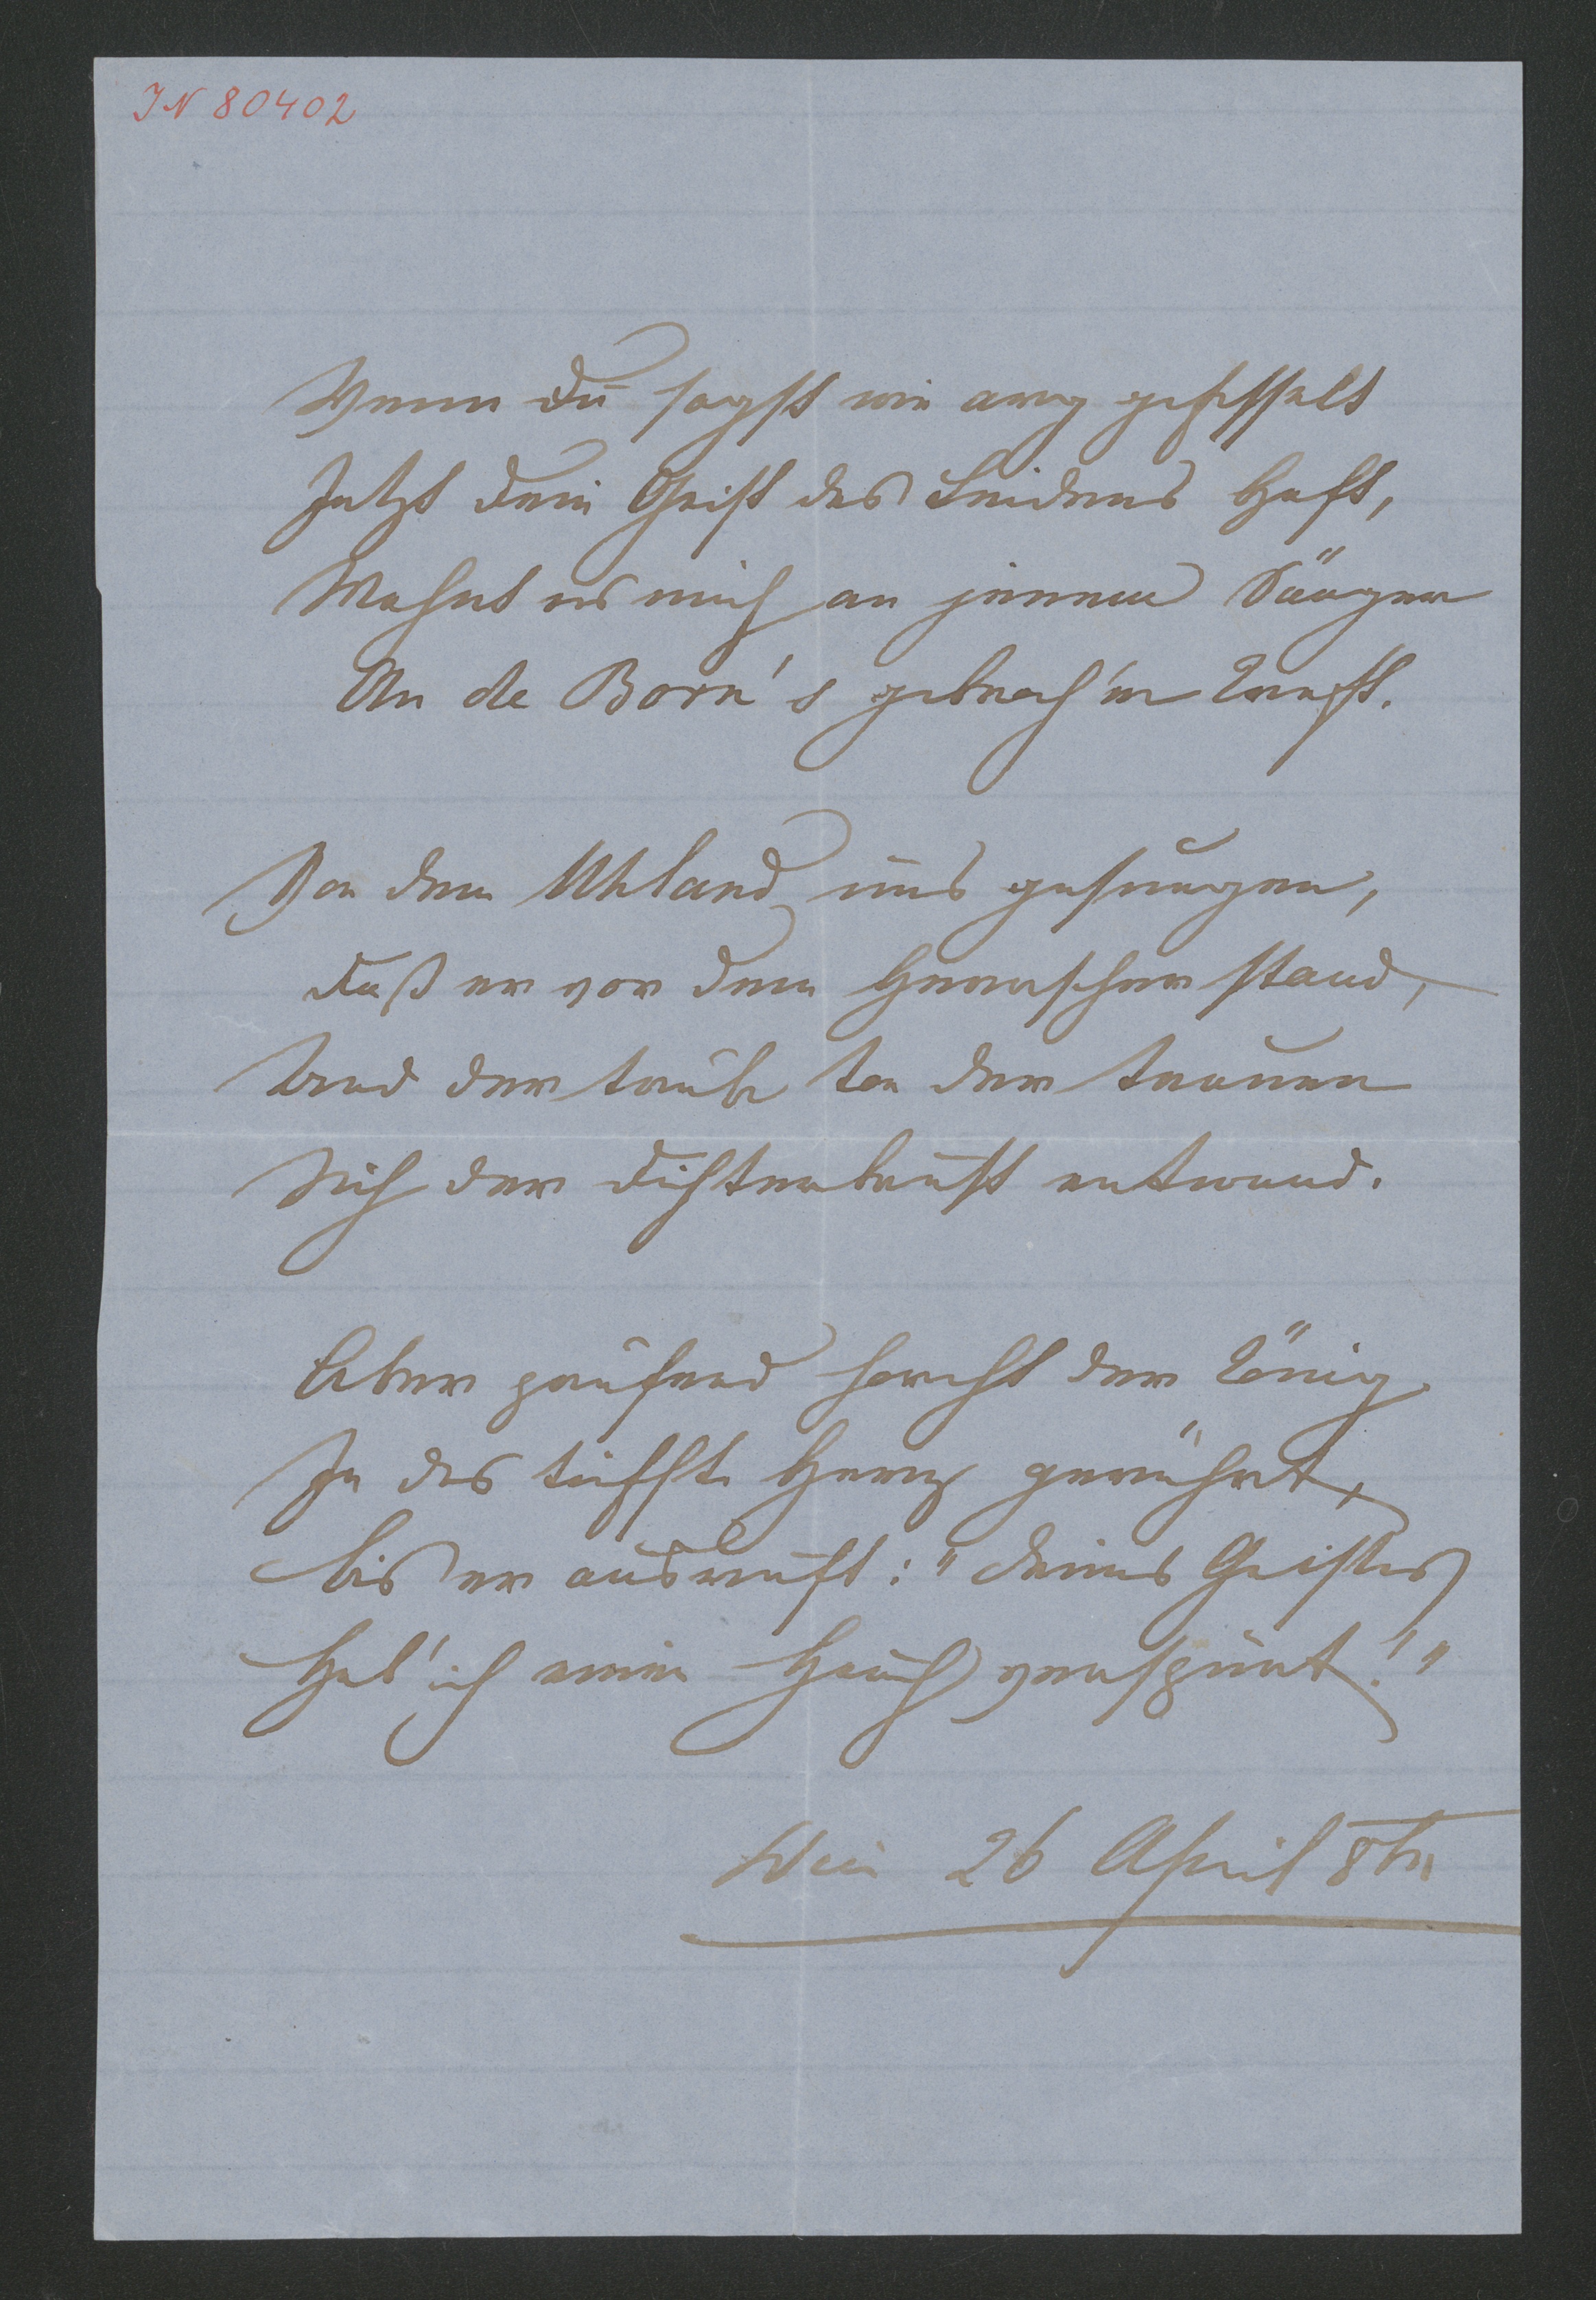 IN 80402
Wenn du sagst wie arg gefesselt
Jetzt dein Geist des Leidens Haft,
Mahnt es mich an jenen Sänger
An de Born's gebroch'ne Kraft.
Von dem Uhland uns gesungen,
Daß er vor dem Herrscher stand,
Und der trübe Ton der Trauer
Sich der Dichterbrust entwand.
Aber prüfend horcht der König
In das tiefste Herz gerührt,
Bis er ausruft: "Deines Geistes
Hab' ich einen Hauch verspürt!"
Wien 26 April